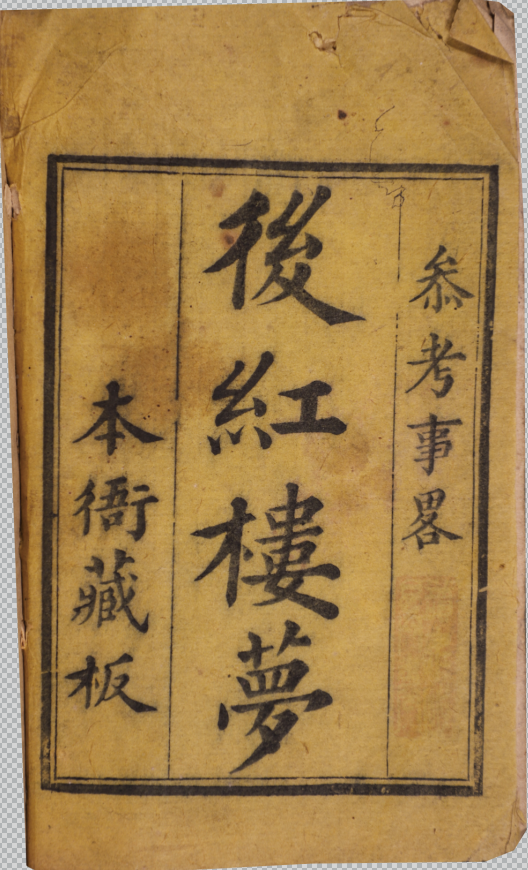 叅考事畧
後紅樓夢
本衙藏板